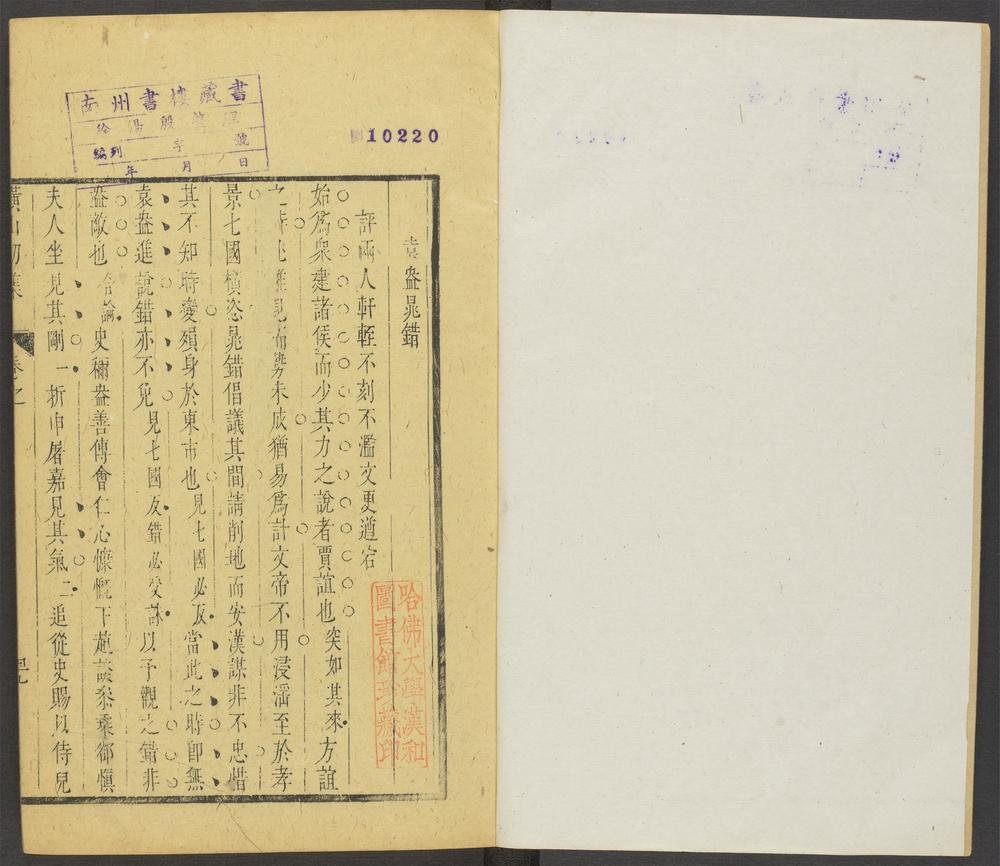 南州書樓藏書
徐湯殷
字 號
編列
年 月 日
10220
袁盎晁錯
評兩人軒輊不刻不濫文更遒宕
始爲衆建諸侯而少其力之說者賈誼也突如其來方誼
之時 而勢未成猶易爲計文帝不用浸淫至於孝
景七國橫恣晁錯倡議其間請削地而安漢謀非不忠惜
其不知時變殞身於東市也見七國必反當此之時即無
袁盎進說錯亦不免見七國反錯必受誅以予觀之錯非
盎敵也合論史稱盎善傅會仁心慷慨下趙談參乘卻慎
夫人坐見其剛一折申屠嘉見其氣二追從史賜以侍兒
黃山初集
卷之
哈佛大學漢和
圖書館珍藏印